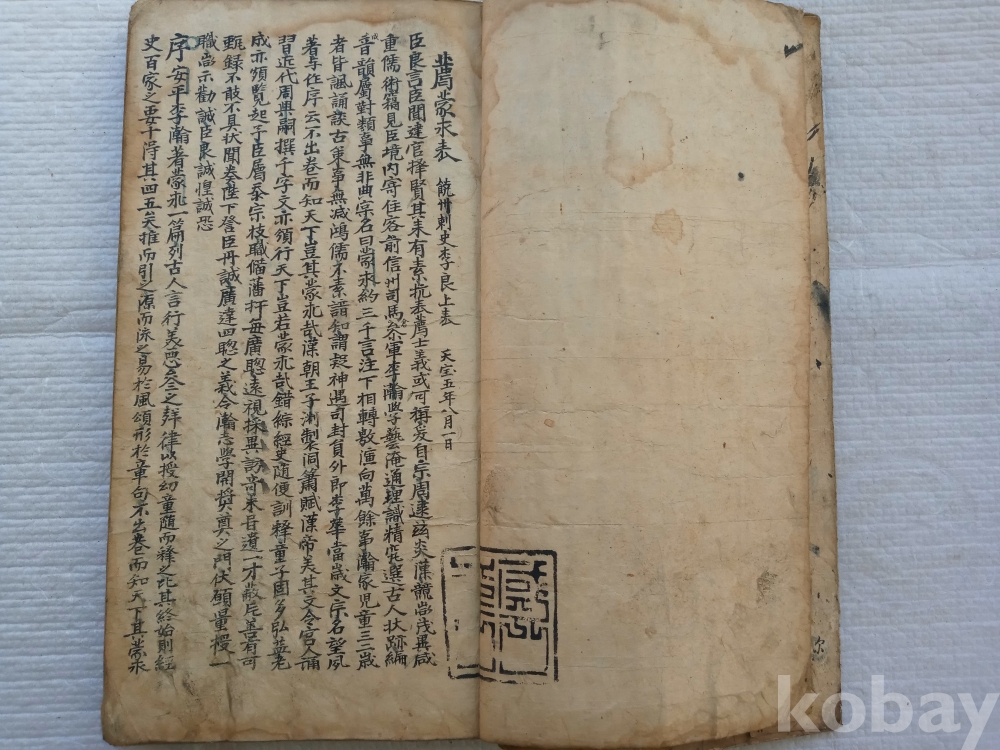 薦蒙求表 饒州刺史李良上表 天宝五年八月一日
臣良言臣聞建官擇賢其来有素抗表薦士義或可稱爰自宗周逮茲炎漢競尚茂異咸
重儒術竊見臣境内寄住客前信州司馬叅軍李瀚學藝淹通理識精究選古人状跡編
音韻屬對類事無非典宗名曰蒙求約三千言注下相轉敷演向萬餘事瀚家児童三三歲
者皆諷誦談古策事無减鴻儒不素諳知謂疑神遇司封負外郎李華當歲文宗名望夙
著與作序云不出卷而知天下豈其蒙求哉漢朝王子淵製洞簫賦漢帝美其文令宮人誦
習近代周興嗣撰千字文亦頒行天下豈若蒙求哉錯綜經史随便訓释童子固多弘益老
成亦頌覧起予臣屬忝宗枝職俻藩扞每廣聡遠視採異訪竒未嘗遺一才蔽片善有可
甄録不敢不具状聞奏陛下登臣丹誠廣達四聡之義令瀚志學開奨奠之門伏願量授一
職尚示勸誠臣良誠惶誠恐
序安平李瀚著蒙求一篇列古人言行美悪叅之聲律以授幼童随而释之比其終始則經
史百家之要十得其四五矣推而引之源而流之易於風頌形於章句不出卷而知天下其蒙求
kobay